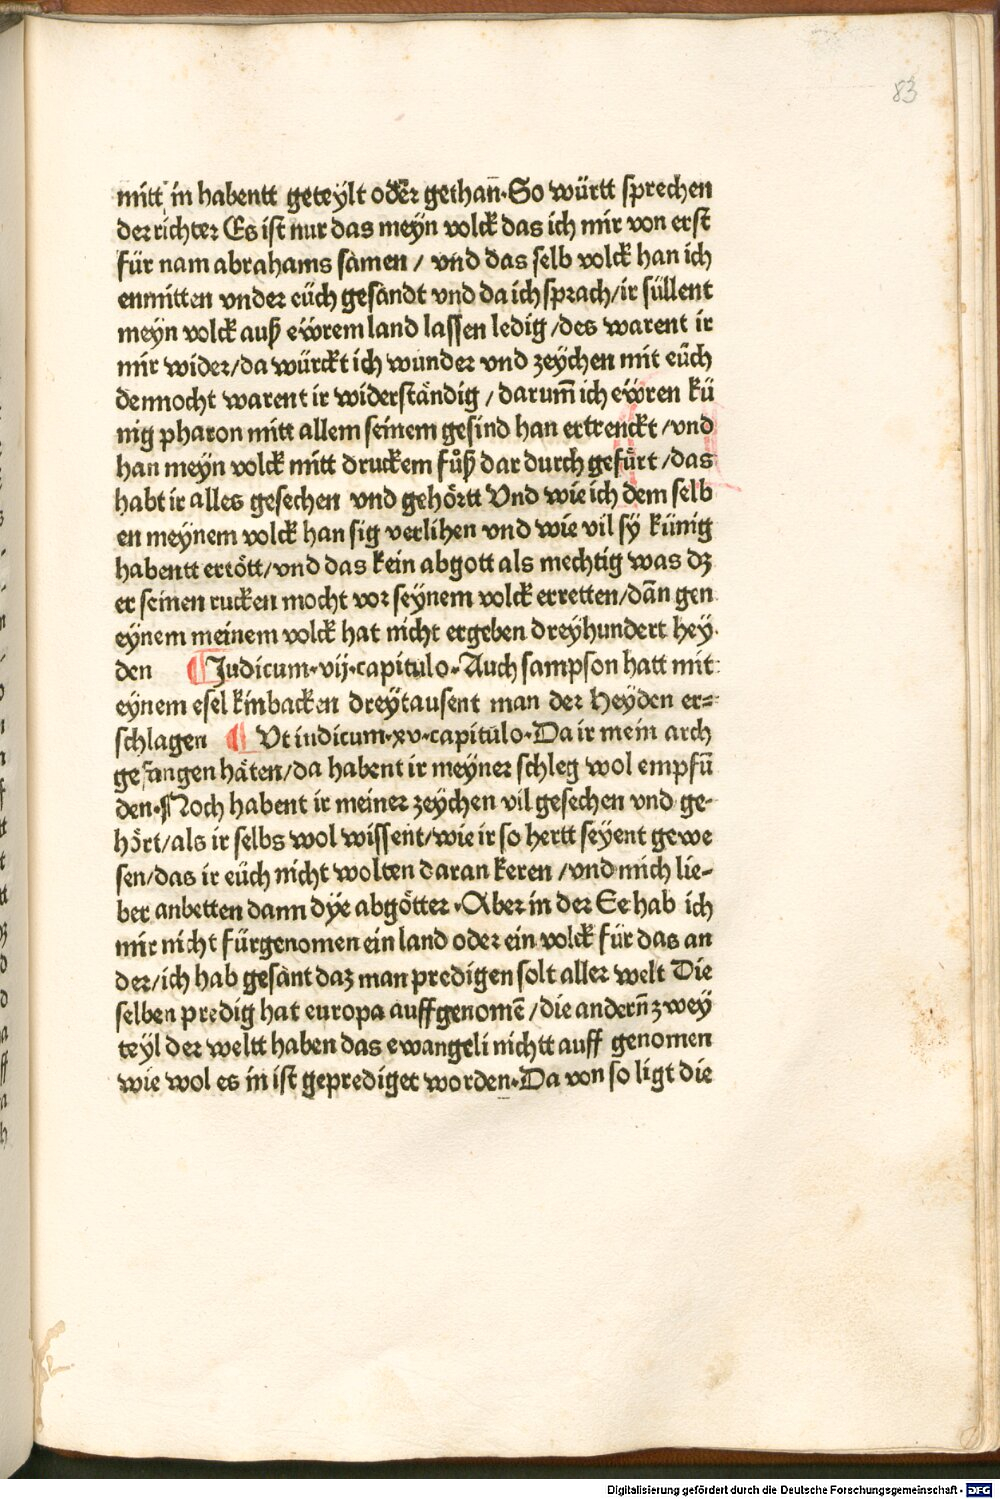 83
mitt in habentt geteylt oder gethan̄·So württ sprechen
der richter Es ist nur das meyn volck das ich mir von erst
für nam abrahams sàmen / vnd das selb volck han ich
enmitten vnder eüch gesàndt vnd da ich sprach/ir süllent
meyn volck auß eẅrem land lassen ledig/des warent ir
mir wider/da würckt ich wunder vnd zeÿchen mit eüch
dennocht warent ir widerstàndig / darum̄ ich eẅren kü
nig pharon mitt allem seinem gesind han ertrenckt /vnd
han meyn volck mitt druckem fůß dar durch gefürt /das
habt ir alles gesechen vnd gehörtt Vnd wie ich dem selb
en meynem volck han sig verlihen vnd wie vil sÿ künig
habentt ertött/vnd das kein abgott als mechtig was dz
er seinen rucken mocht vor seynem volck erretten/dān gen
eynem meinem volck hat nicht ergeben dreyhundert hey·
den ¶Judicum·vij·capitulo·Auch sampson hatt mit
eynem esel kinbacken dreÿtausent man der Heyden er⸗
schlagen ¶ Vt iudicum·xv·capitulo·Da ir mein arch
gefangen hàten/da habent ir meyner schleg wol empfū
den·Noch habent ir meiner zeÿchen vil gesechen vnd ge-
hört/als ir selbs wol wissent/wie ir so hertt seÿent gewe
sen/das ir eüch nicht wolten daran keren /vnd mich lie-
ber anbetten dann dÿe abgötter·Aber in der Ee hab ich
mir nicht fürgenomen ein land oder ein volck für das an
der/ich hab gesànt daz man predigen solt aller welt Die
selben predig hat europa auffgenomē /die andern̄ zwey
teÿl der weltt haben das ewangeli nichtt auff genomen
wie wol es in ist geprediget worden·Da von so ligt die
Digitalisierung gefördert durch die Deutsche Forschungsgemeinschaft - DFG